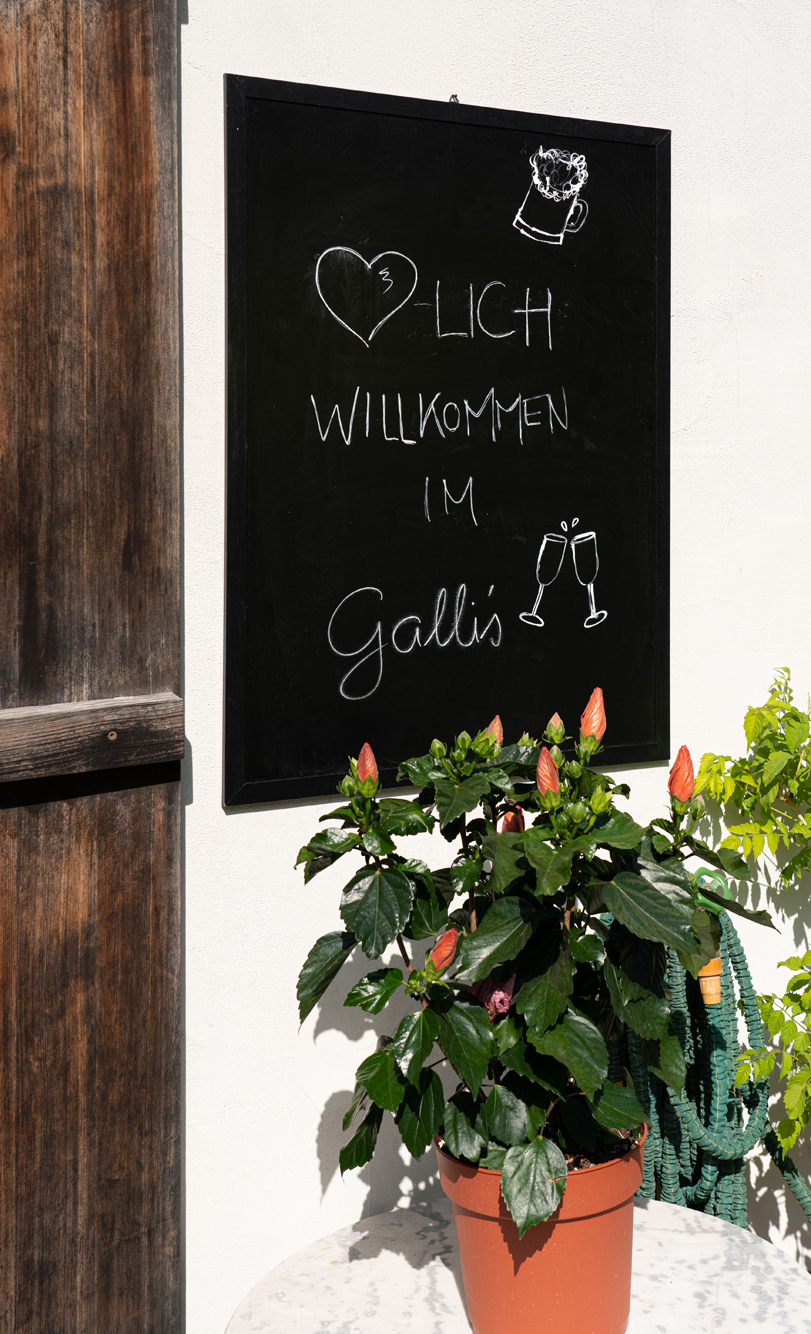 ❤-LICH
WILLKOMMEN
IM
Galli's